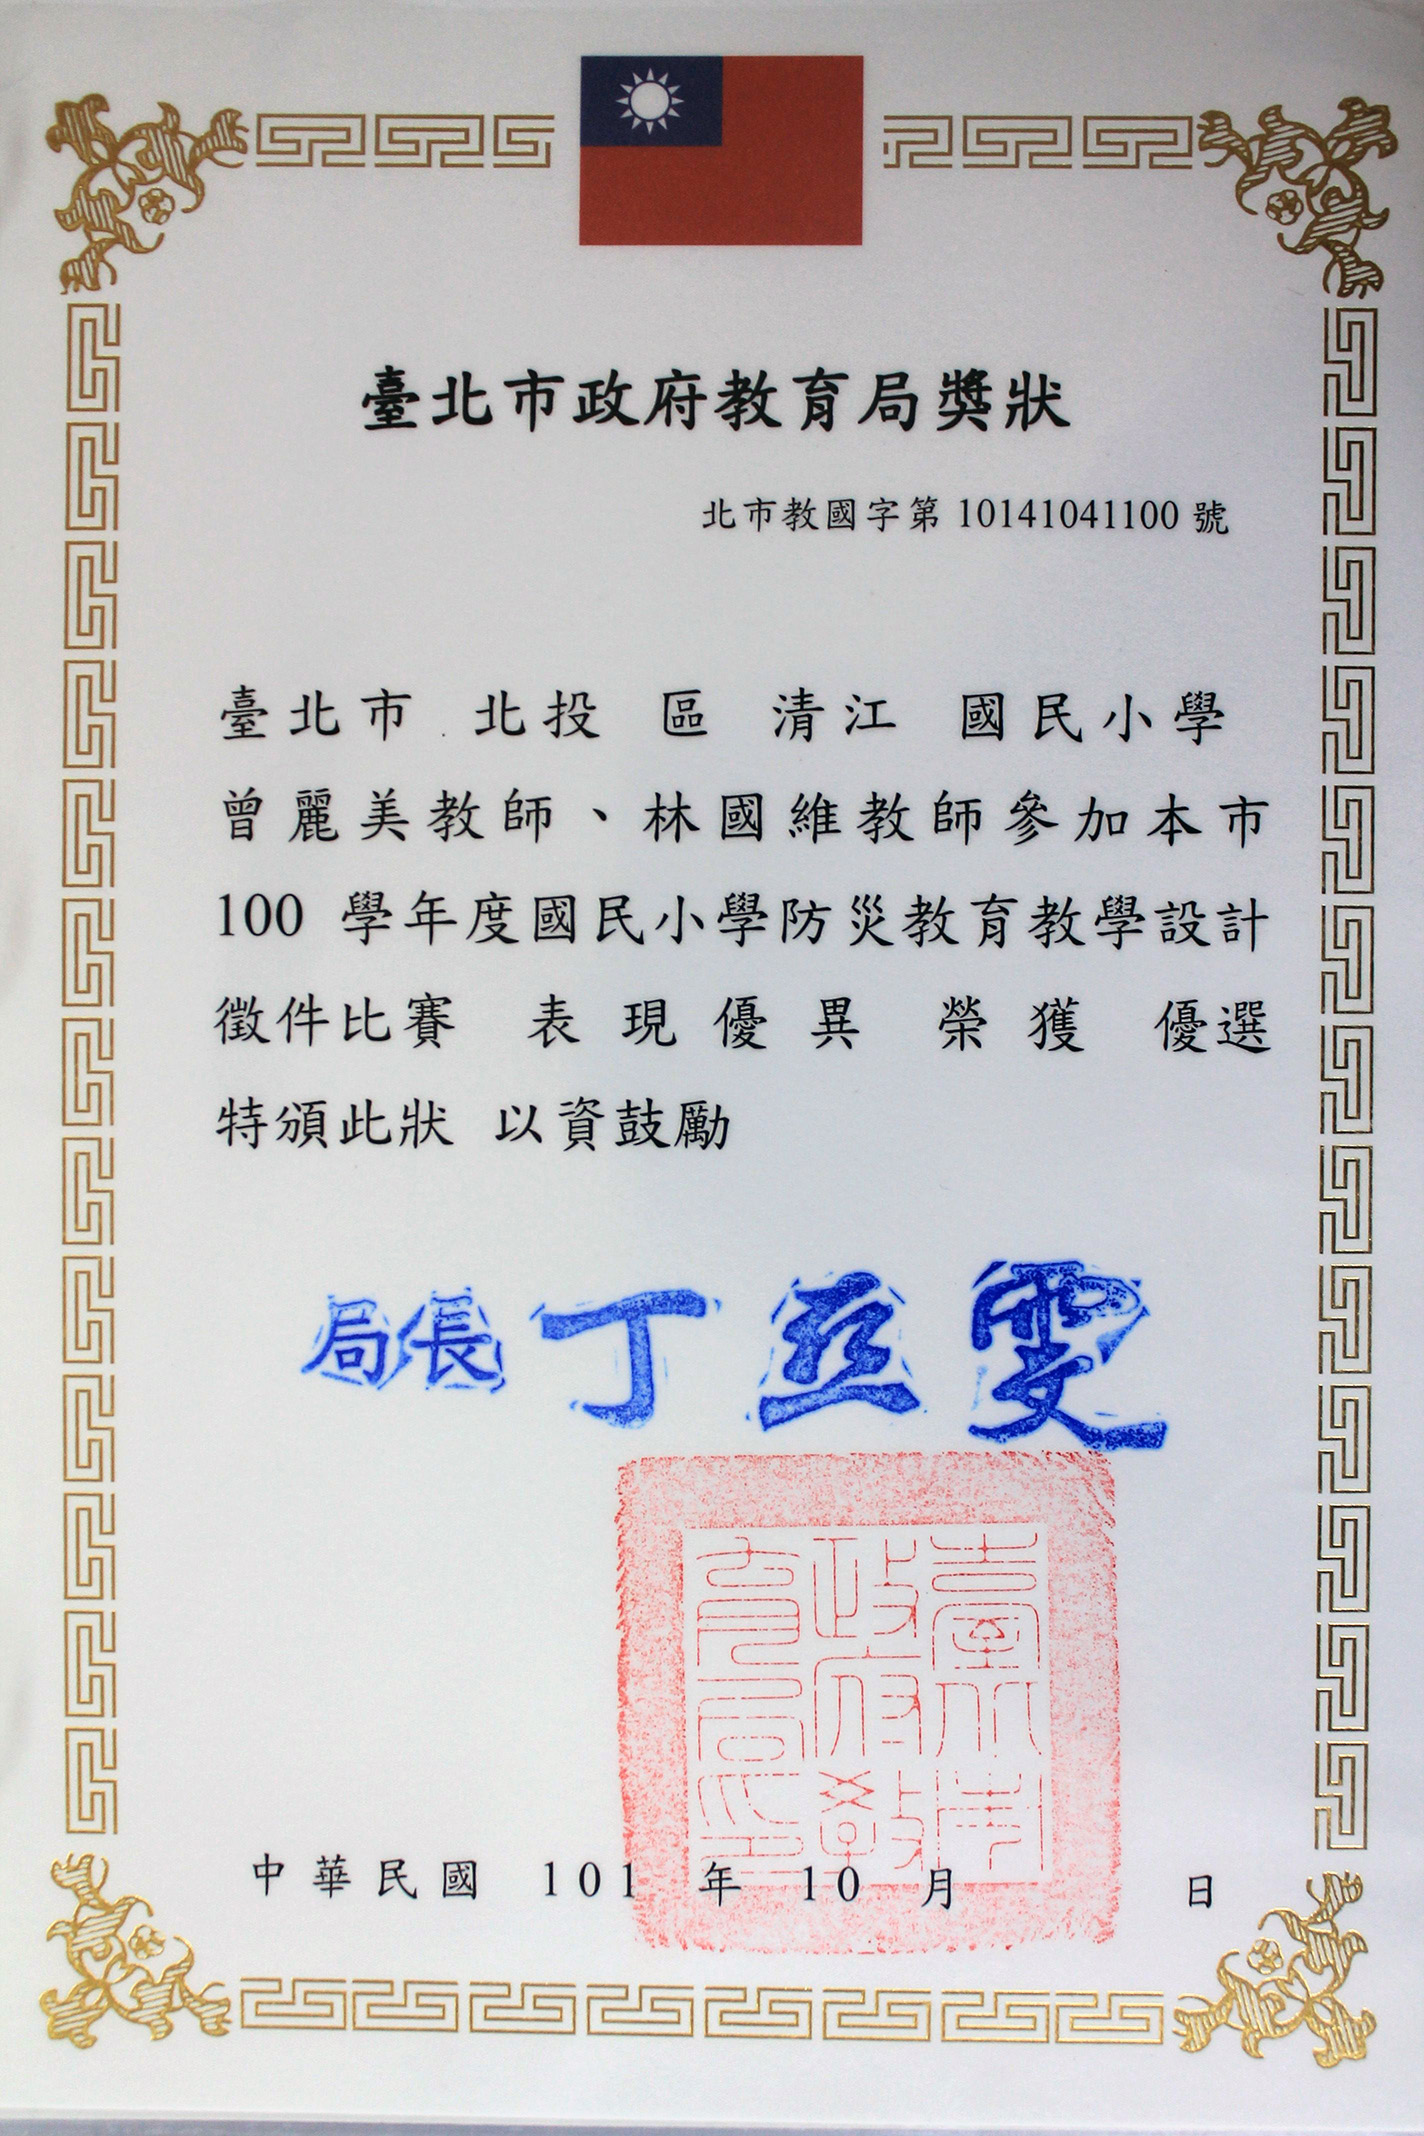 臺北市政府教育局獎狀
北市教國字第 10141041100 號
臺北市 北投 區 清江 國民小學
曾麗美教師、林國維教師參加本市
100 學年度國民小學防災教育教學設計
徵件比賽 表現優異 榮獲 優選
特頒此狀 以資鼓勵
局長 丁亞雯
臺北市
政府教
育局印
中華民國 101 年 10 月 日